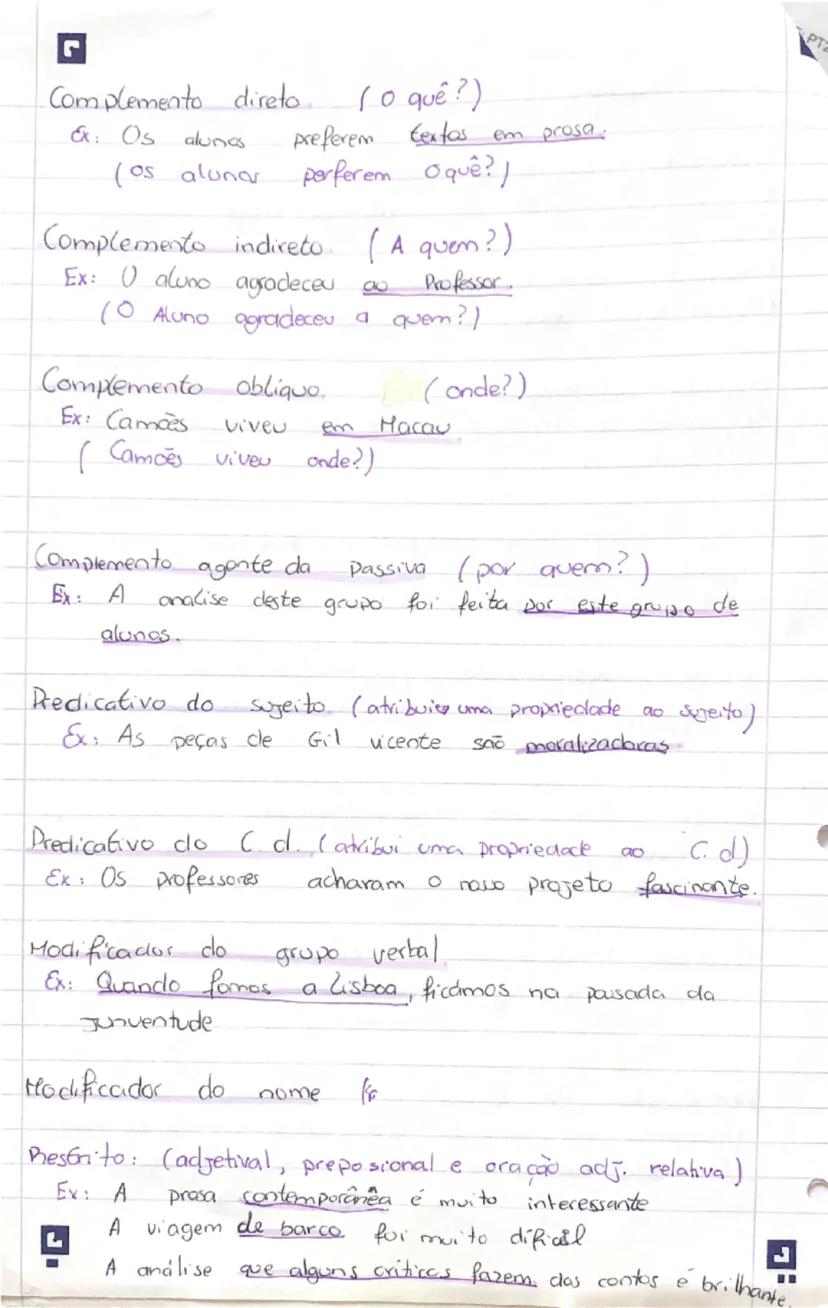 PT2
Complemento direto (O quê?)
Ex: Os alunos preferem textos em prosa.
(os alunos perferem o quê?)
Complemento indireto (A quem?)
Ex: O aluno agradeceu ao Professor.
(O Aluno agradeceu a quem?)
Complemento obliquo. (onde?)
Ex: Camões viveu em Macau
(Camões viveu onde?)
Complemento agente da passiva (por quem?)
Ex: A analise deste grupo foi feita por este grupo de
alunos.
Predicativo do sujeito (atribui uma propriedade ao sujeito)
Ex: As peças de Gil vicente são moralizadoras
Predicativo do C.d. (atribui uma propriedade ao C.d)
Ex: Os professores acharam o nosso projeto fascinante.
Modificador do grupo verbal
Ex: Quando fomos a Lisboa, ficámos na pousada da
Junventude
Modificador do nome
Restrito: (adjetival, preposional e oração adj. relativa)
Ex: A prosa contemporânêa é muito interessante
A viagem de barco foi muito dificil
A análise que alguns críticos fazem dos contos é brilhante